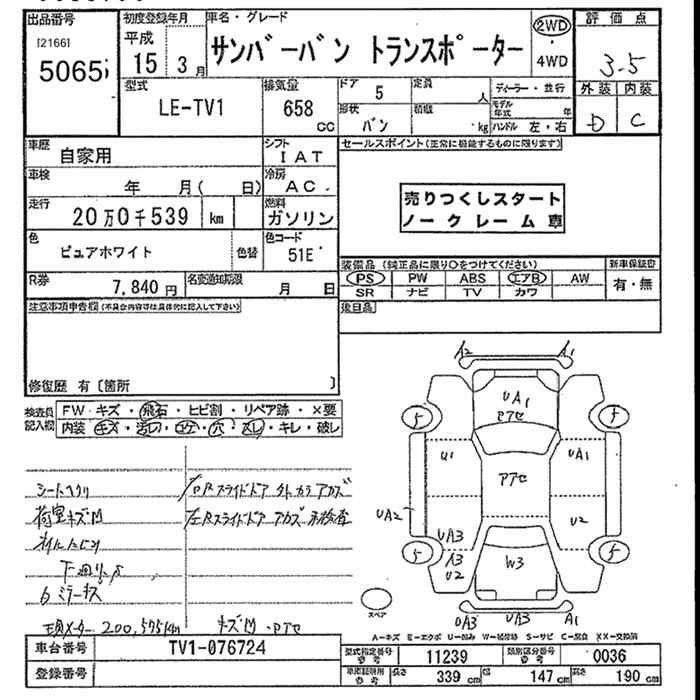 出品番号
[2166]
5065
初度登録年月
平成
15 3月
車名・グレード
サンバーバン トランスポーター
2WD
4WD
評価点
3.5
外装 内装
D C
型式
LE-TV1
排気量
658
cc
ドア 5
形状 バン
定員 人
積載 kg
ディーラー・並行
モデル年式 年
ハンドル 左・右
車歴
自家用
シフト
IAT
車検
年 月( 日)
冷房
AC
走行
20万0千539 km
燃料
ガソリン
色
ピュアホワイト
色替
色コード
51E
R券
7,840円
名変通知期限
月 日
セールスポイント(正常に機能するものに限ります)
売りつくしスタート
ノークレーム車
装備品(純正品に限り○をつけてください)
PS PW ABS エアB AW
SR ナビ TV カワ
新車保証書
有・無
後日品
注意事項申告欄(不具合内容は具体的に記入して下さい)
修復歴 有〔箇所 〕
検査員記入欄
FW キズ・飛石・ヒビ割・リペア跡・×要
内装 キズ・汚れ・コゲ・穴・スレ・キレ・破レ
シートヘタリ
荷室キズ凹
下廻りサ
ミラーキズ
右Rスライドドア
左Rスライドドア
現メーター 200,575km
キズ凹・アセ
A2 A1
UA1
アアセ
5 5
U1
アアセ
UA1
UA2
U2
UA3
A3
U2
5 5
W3
UA3 UA3 A1
スペア
A−キズ E−エクボ U−凹み W−補修跡 S−サビ C−腐食 XX−交換済
車台番号
TV1-076724
登録番号
型式指定番号
参考
11239
類別区分番号
参考
0036
長さ
339 cm
幅
147 cm
高さ
190 cm